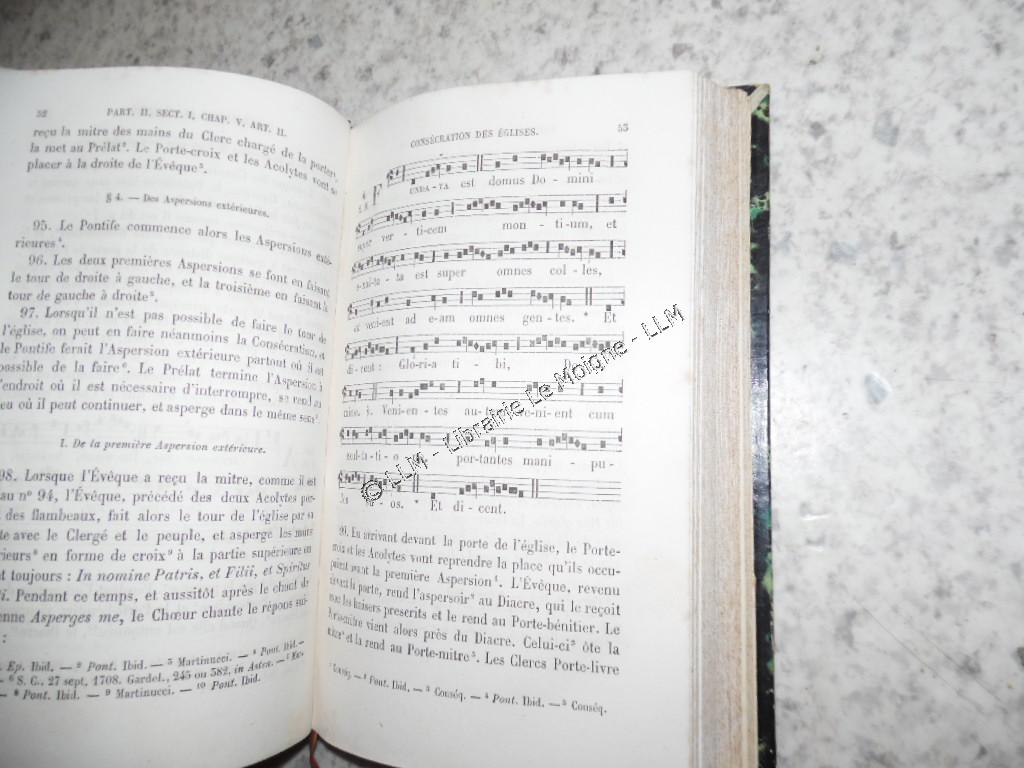 52 PART. II, SECT. I, CHAP. V, ART. II.
reçu la mitre des mains du Clerc chargé de la porter,
la met au Prélat². Le Porte-croix et les Acolytes vont se
placer à la droite de l'Évêque³.
§ 4. — Des Aspersions extérieures.
95. Le Pontife commence alors les Aspersions exté-
rieures⁴.
96. Les deux premières Aspersions se font en faisant
le tour de droite à gauche, et la troisième en faisant le
tour de gauche à droite⁵.
97. Lorsqu'il n'est pas possible de faire le tour de
l'église, on peut en faire néanmoins la Consécration, et
le Pontife ferait l'Aspersion extérieure partout où il est
possible de la faire⁶. Le Prélat termine l'Aspersion à
l'endroit où il est nécessaire d'interrompre, se rend au
eu où il peut continuer, et asperge dans le même sens⁷.
1. De la première Aspersion extérieure.
98. Lorsque l'Évêque a reçu la mitre, comme il est
au n° 94, l'Évêque, précédé des deux Acolytes por-
des flambeaux, fait alors le tour de l'église par sa
te avec le Clergé et le peuple, et asperge les murs
rieurs⁸ en forme de croix⁹ à la partie supérieure en
t toujours : In nomine Patris, et Filii, et Spiritus
i. Pendant ce temps, et aussitôt après le chant de
enne Asperges me, le Chœur chante le répons sui-
:
Ep. Ibid. — ² Pont. Ibid. — ³ Martinucci. — ⁴ Pont. Ibid. —
— ⁶ S. C., 27 sept. 1708. Gardel., 245 ou 582, in Asten. —
— ⁸ Pont. Ibid. — ⁹ Martinucci. — ¹⁰ Pont. Ibid.
CONSÉCRATION DES ÉGLISES. 53
FUNDA-TA est domus Do - mini
ver - ticem mon - ti-um, et
e-xal-ta - ta est super omnes col - les,
et venient ad e-am omnes gen - tes. * Et
di - cent : Gló-ri-a ti - bi,
mine. ℣. Veni-en - tes au-tem veni-ent cum
xul-ta-ti-o - portantes mani - pu-
los - su-os. * Et di - cent.
99. En arrivant devant la porte de l'église, le Porte-
croix et les Acolytes vont reprendre la place qu'ils occu-
paient avant la première Aspersion⁴. L'Évêque, revenu
devant la porte, rend l'aspersoir² au Diacre, qui le reçoit
avec les baisers prescrits et le rend au Porte-bénitier. Le
vient alors près du Diacre. Celui-ci³ ôte la
mitre⁴ et la rend au Porte-mitre⁵. Les Clercs Porte-livre
¹ Conséq. — ² Pont. Ibid. — ³ Conséq. — ⁴ Pont. Ibid. — ⁵ Conséq.
© LLM - Librairie Le Moigne - LLM